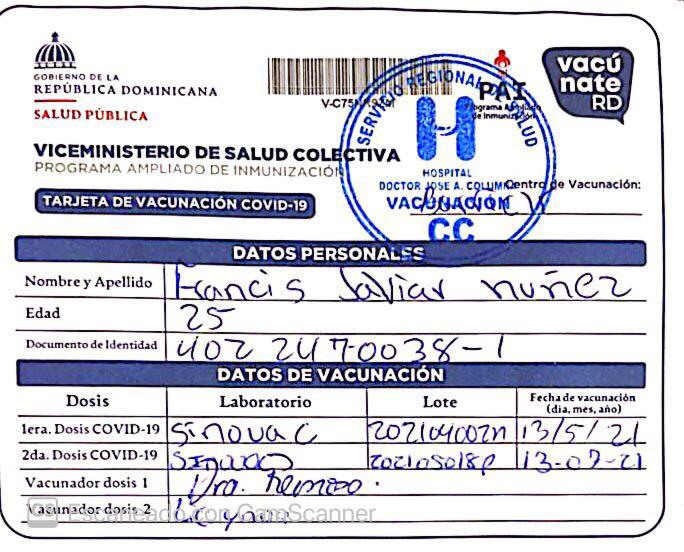 GOBIERNO DE LA
REPÚBLICA DOMINICANA
SALUD PÚBLICA
PAI
Programa Ampliado
de Inmunización
vacú
nate
RD
VICEMINISTERIO DE SALUD COLECTIVA
PROGRAMA AMPLIADO DE INMUNIZACIÓN
TARJETA DE VACUNACIÓN COVID-19
SERVICIO REGIONAL DE SALUD
H
HOSPITAL
DOCTOR JOSE A. COLUMNA
VACUNACIÓN
CC
Centro de Vacunación:
DATOS PERSONALES
Nombre y Apellido Francis Javiar nuñez
Edad 25
Documento de Identidad 402 2470038-1
DATOS DE VACUNACIÓN
Dosis Laboratorio Lote Fecha de vacunación
(dia, mes, año)
1era. Dosis COVID-19 Sinovac 13/5/21
2da. Dosis COVID-19 13-07-21
Vacunador dosis 1 Dra.
Vacunador dosis 2
CS Escaneado con CamScanner